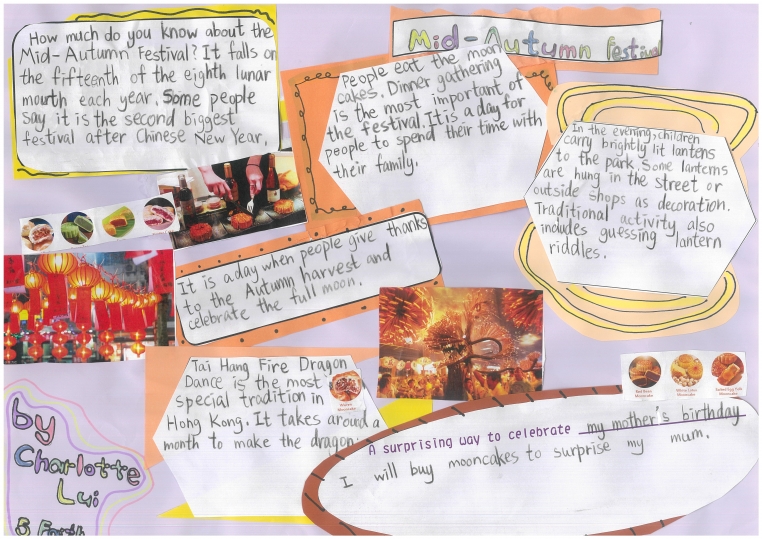 How much do you know about the
Mid-Autumn Festival? It falls on
the fifteenth of the eighth lunar
mouth each year. Some people
say it is the second biggest
festival after Chinese New Year.
Mid-Autumn festival
People eat the moon
cakes. Dinner gathering
is the most important of
the festival. It is a day for
people to spend their time with
their family.
In the evening, children
carry brightly lit lantens
to the park. Some lanterns
are hung in the street or
outside shops as decoration.
Traditional activity also
includes guessing lantern
riddles.
It is a day when people give thanks
to the Autumn harvest and
celebrate the full moon.
Tai Hang Fire Dragon
Dance is the most
special tradition in
Hong Kong. It takes around a
month to make the dragon.
Red Bean
Mooncake
Mooncake
Mooncake
A surprising way to celebrate my mother's birthday
I will buy mooncakes to surprise my mum.
by
Charlotte
Lui
5 Faith